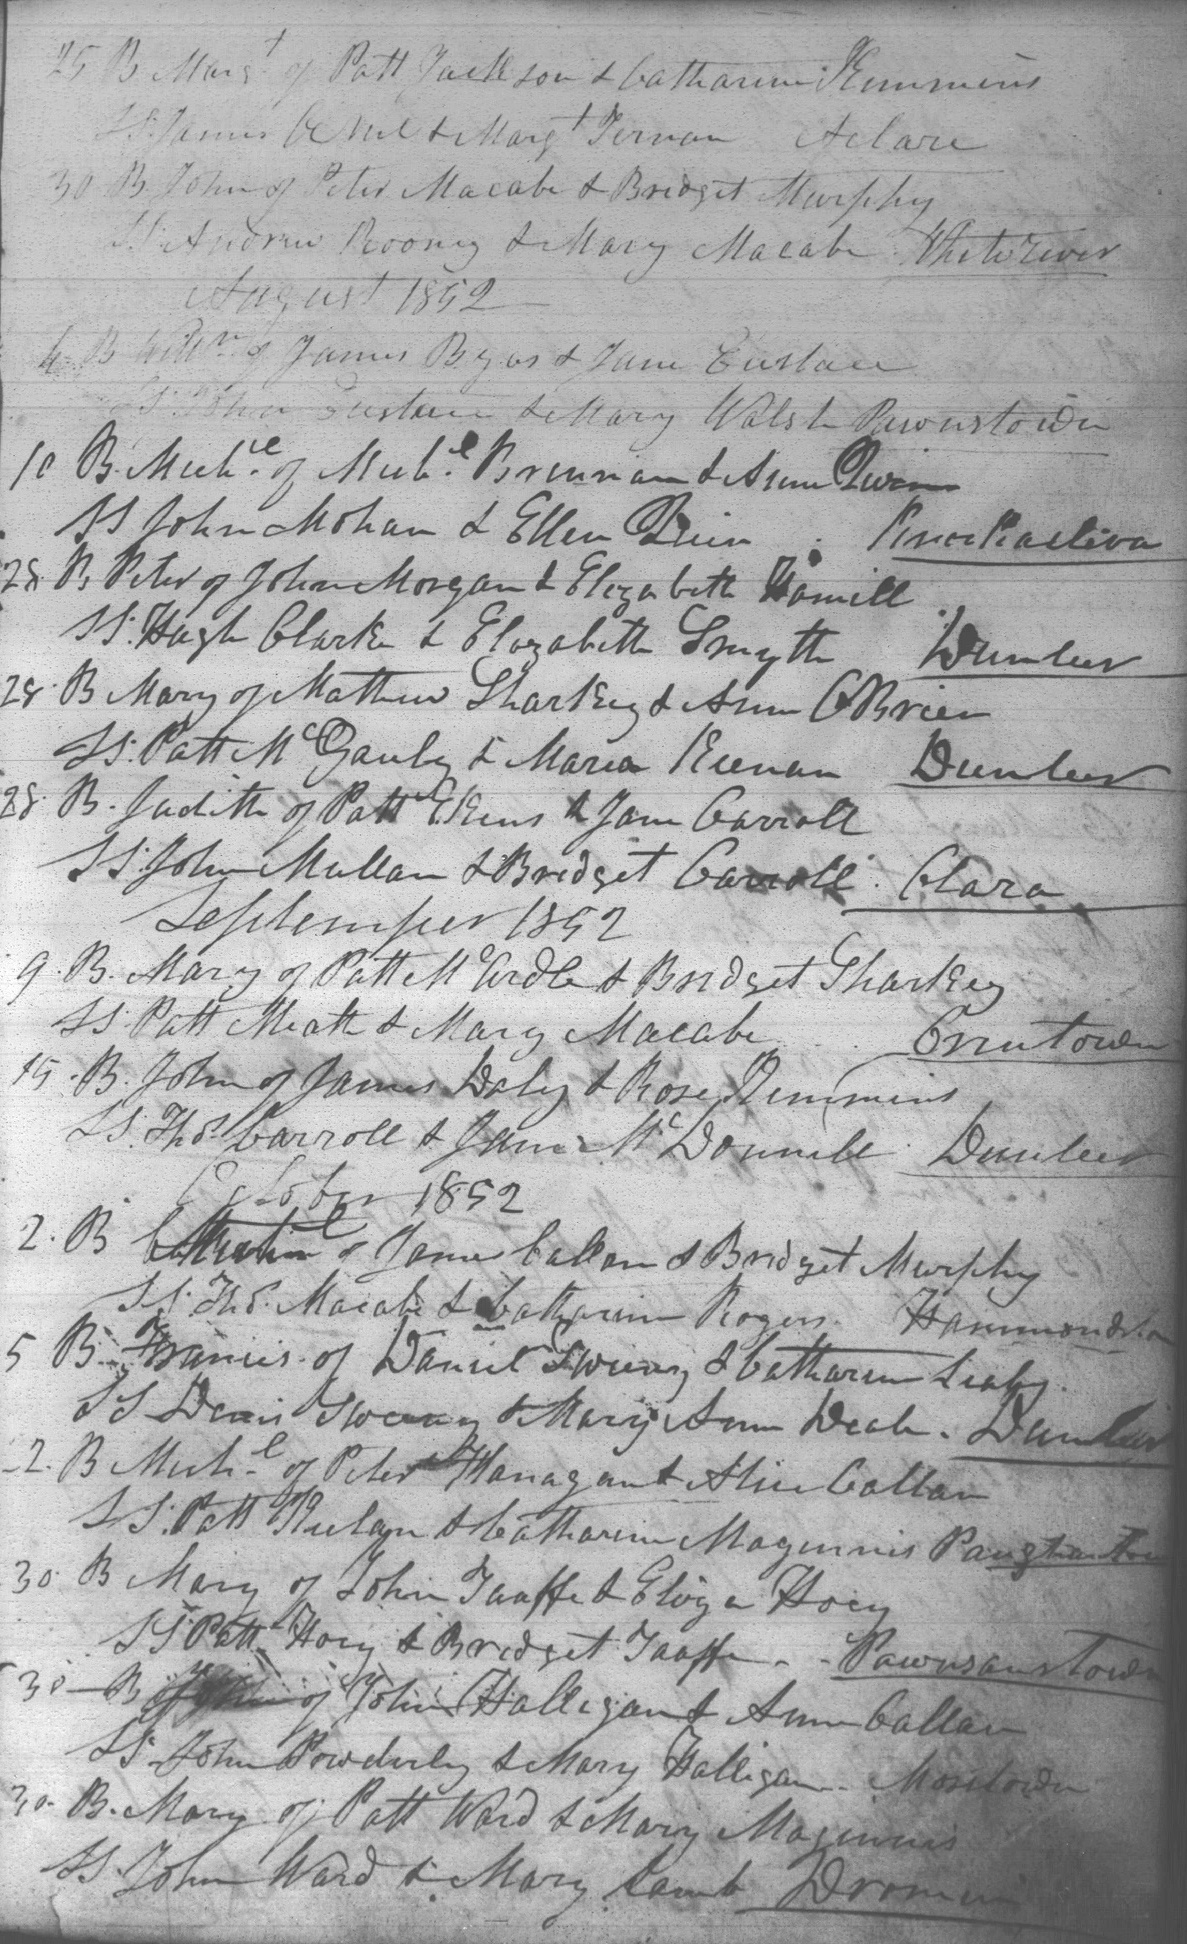 25 B Margt of Patt Jackson & Catharine Kimmins
SS. James & Margt Ternan Aclare
30 B John of Peter Macabe & Bridget Murphy
SS. Andrew Rooney & Mary Macabe Whiteriver
August 1852
4 B Willm of James Byrs & Jane Eustace
SS. John Eustace & Mary Walsh Pawnstown
10 B. Michl. of Michl. Brennan & Anne
SS John Mohan & Ellen
28 B Peter of John Morgan & Elizabeth Hamill
SS. Hugh Clarke & Elozabeth Smyth Dunleer
28 B Mary of Mathew Sharkey & Anne OBrien
SS. Patt McGauly & Maria Keenan Dunleer
28 B. Judith of Patt & Jane Carroll
SS. John Mullan & Bridget Carroll. Clara
September 1852
9. B. Mary of Patt McArdle & Bridget Sharkey
SS. Patt Meath & Mary Macabe
15. B. John of James Daly & Rose Kimmins
SS. Thos. Carroll & Jane McDonnell Dunleer
October 1852
2. B of James Callan & Bridget Murphy
SS. Thos. Macabe & Catharine Rogers. Hammondstn
5 B. Francis. of Daniel Sweeny & Catharine Leahy.
SS Denis Sweeny & Mary Anne. Dunleer
2. B Michl. of Peter Flanagan & Alice Callan
SS. Patt & Catharine Magennis
30. B Mary of John Taaffe & Eliza Hoey
SS Patt Hoey & Bridget Taaffe - - Pawnsanstown
30 - B of John Halligan & Anne Callan
SS. John Powderly & Mary Halligan. Mosstown
30. B. Mary of Patt Ward & Mary Magennis
SS. John Ward & Mary Lamb Dromin